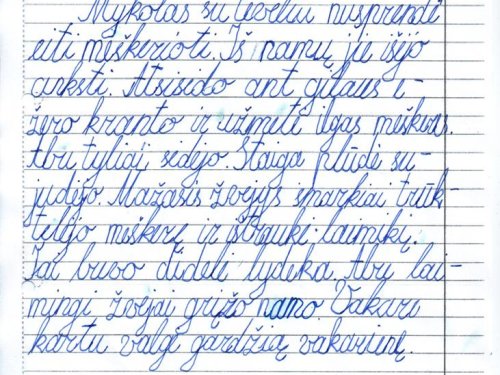 Mykolas su tėveliu nusprendė
eiti meškerioti. Iš namų jie išėjo
anksti. Atsisėdo ant gilaus e-
žero kranto ir užmetė ilgas meškeres.
Abu tyliai sėdėjo. Staiga plūdė su-
judėjo. Mažasis žvejys smarkiai trūk-
telėjo meškerę ir ištraukė laimikį.
Tai buvo didelė lydeka. Abu lai-
mingi žvejai grįžo namo. Vakare
kartu valgė gardžią vakarienę.